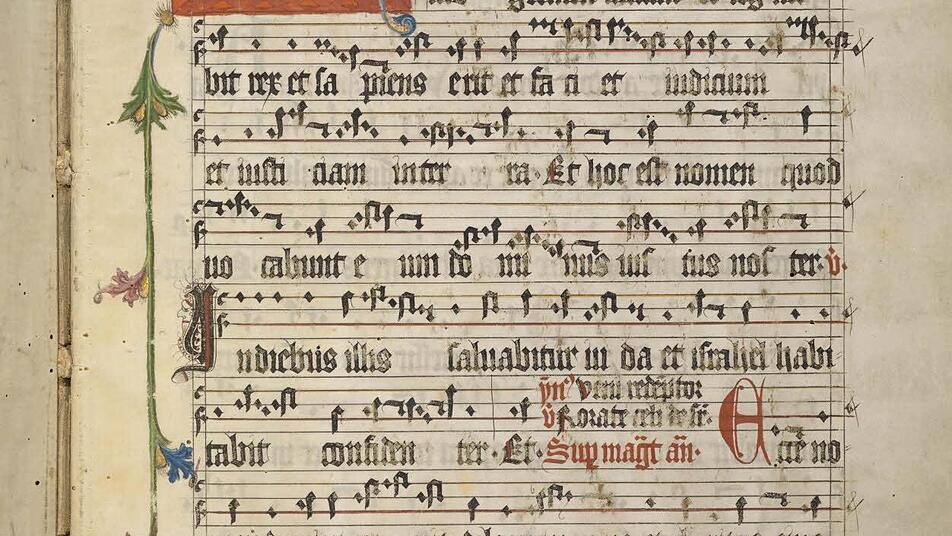 bit rex et sa piens erit et fa ci et iudicium
et iusti ciam inter ra. Et hoc est nomen quod
uo cabunt e um do mi nus ius tus nos ter. v̄.
In diebus illis saluabitur iu da et israhel habi
ym̄ Veni redēptor
v̄ Rorate celi desr̄.
tabit confiden ter. Et. Sup maḡt an̄. E cce no